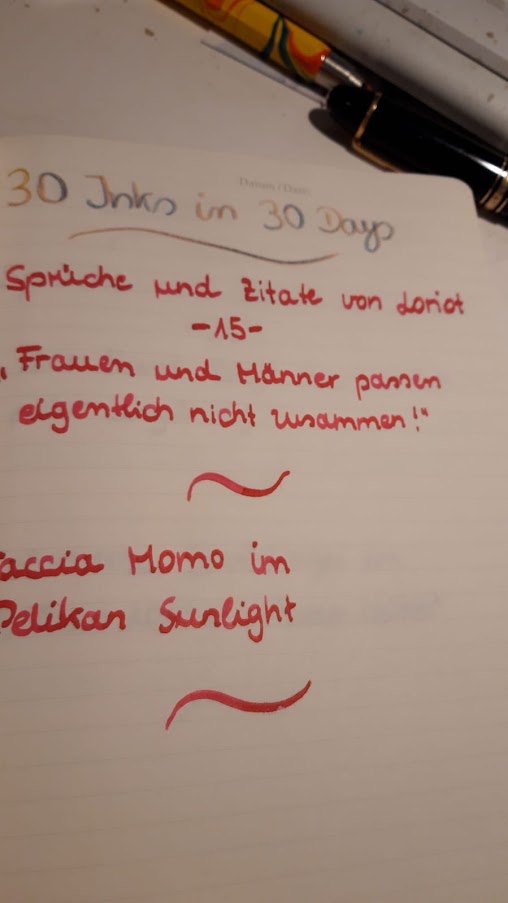 Datum / Date:
30 Inks in 30 Days
Sprüche und Zitate von Loriot
-15-
„Frauen und Männer passen
eigentlich nicht zusammen!"
Momo im
Pelikan Sunlight